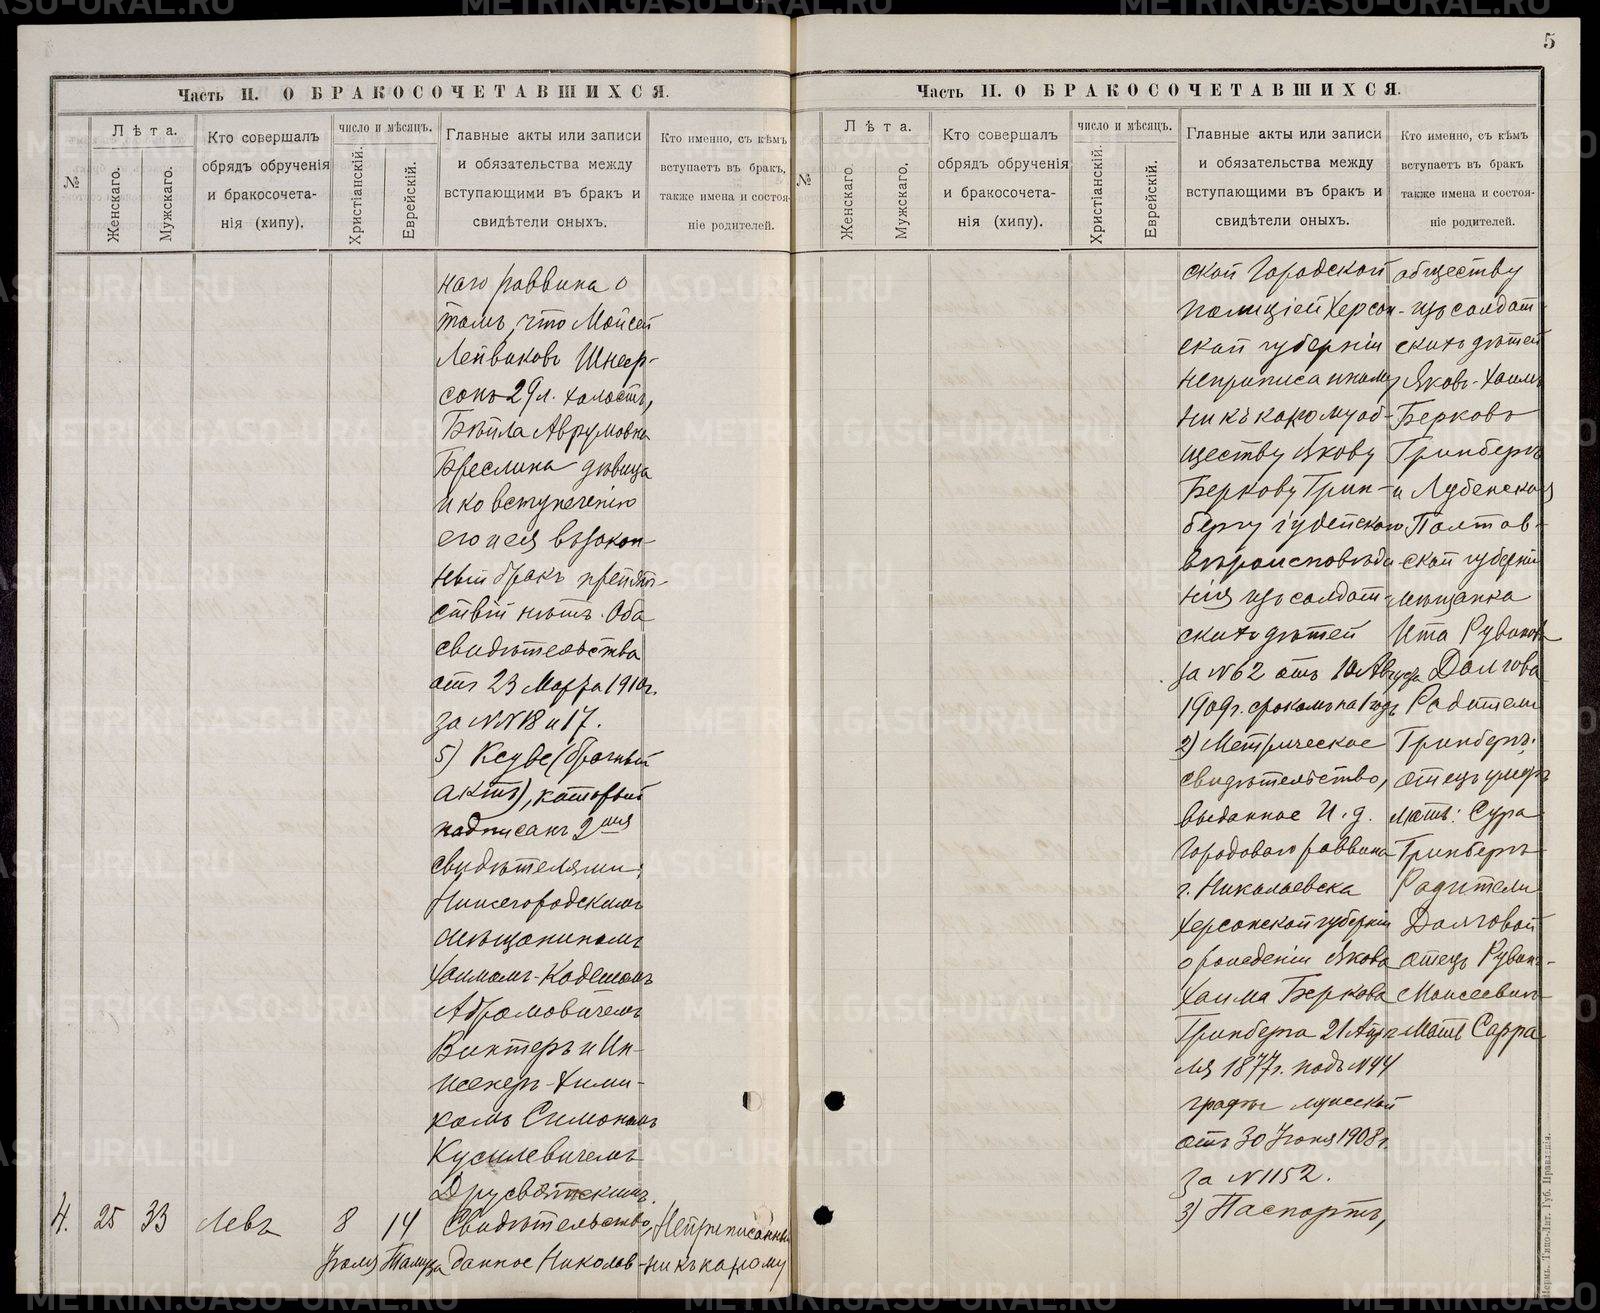 METRIKI.GASO-URAL.RU
5
Часть II. О БРАКОСОЧЕТАВШИХСЯ.
№
Лѣта.
Женскаго.
Мужскаго.
Кто совершалъ
обрядъ обрученія
и бракосочета-
нія (хипу).
число и мѣсяцъ.
Христіанскій.
Еврейскій.
Главные акты или записи
и обязательства между
вступающими въ бракъ и
свидѣтели оныхъ.
Кто именно, съ кѣмъ
вступаетъ въ бракъ,
также имена и состоя-
ніе родителей.
наго раввина о
томъ, что Мойсей
Лейваковъ Шнеер-
сонъ 29 л. холостъ,
Бейла Аврумовна
Бреслина дѣвица
и ко вступленію
его и ея въ закон-
ный бракъ препят-
ствій нѣтъ. Оба
свидѣтельства
отъ 23 Марта 1910 г.
за №№ 18 и 17.
5) Ксуве (брачный
актъ), который
подписанъ 2мя
свидѣтелями:
Нижегородскимъ
мѣщаниномъ
Хаимомъ-Кадешомъ
Абрамовичемъ
Винтеръ и Ин-
женеръ-Хими-
комъ Симономъ
Кусилевичемъ
Друсвятскимъ.
4. 25 33 Левъ 8 14 Свидѣтельство, Неприписанный
Іюля Тамуза данное Николаев- ни къ какому
Часть II. О БРАКОСОЧЕТАВШИХСЯ.
№
Лѣта.
Женскаго.
Мужскаго.
Кто совершалъ
обрядъ обрученія
и бракосочета-
нія (хипу).
число и мѣсяцъ.
Христіанскій.
Еврейскій.
Главные акты или записи
и обязательства между
вступающими въ бракъ и
свидѣтели оныхъ.
Кто именно, съ кѣмъ
вступаетъ въ бракъ
также имена и состоя-
ніе родителей.
ской Городской
Полиціей Херсон-
ской губерніи
неприписанному
ни къ какому об-
ществу Якову
Беркову Грин-
бергу іудейскаго
вѣроисповѣда
нія изъ солдат-
скихъ дѣтей
за № 62 отъ 10 Августа
1909 г. срокомъ на 1 годъ
2) Метрическое
свидѣтельство,
выданное И. д.
Городового раввина
г. Николаевска
Херсонской губерніи
о рожденіи Якова
Хаима Беркова
Гринберга 21 Апре
ля 1877 г. подъ № 44
графы мужской
отъ 30 Іюня 1908 г.
за № 1152.
3) Паспортъ,
обществу
изъ солдат-
скихъ дѣтей
Яковъ-Хаимъ
Берковъ
Гринбергъ
и Лубенская
Полтав-
ской губерніи
мѣщанка
Ита Рувинова
Долгова
Родители
Гринбергъ:
отецъ умеръ
мать: Сура
Гринбергъ
Родители
Долговой
отецъ Рувинъ-
Моисеевичъ
Мать Сарра
Пермь. Типо-Лит. Губ. Правленія.